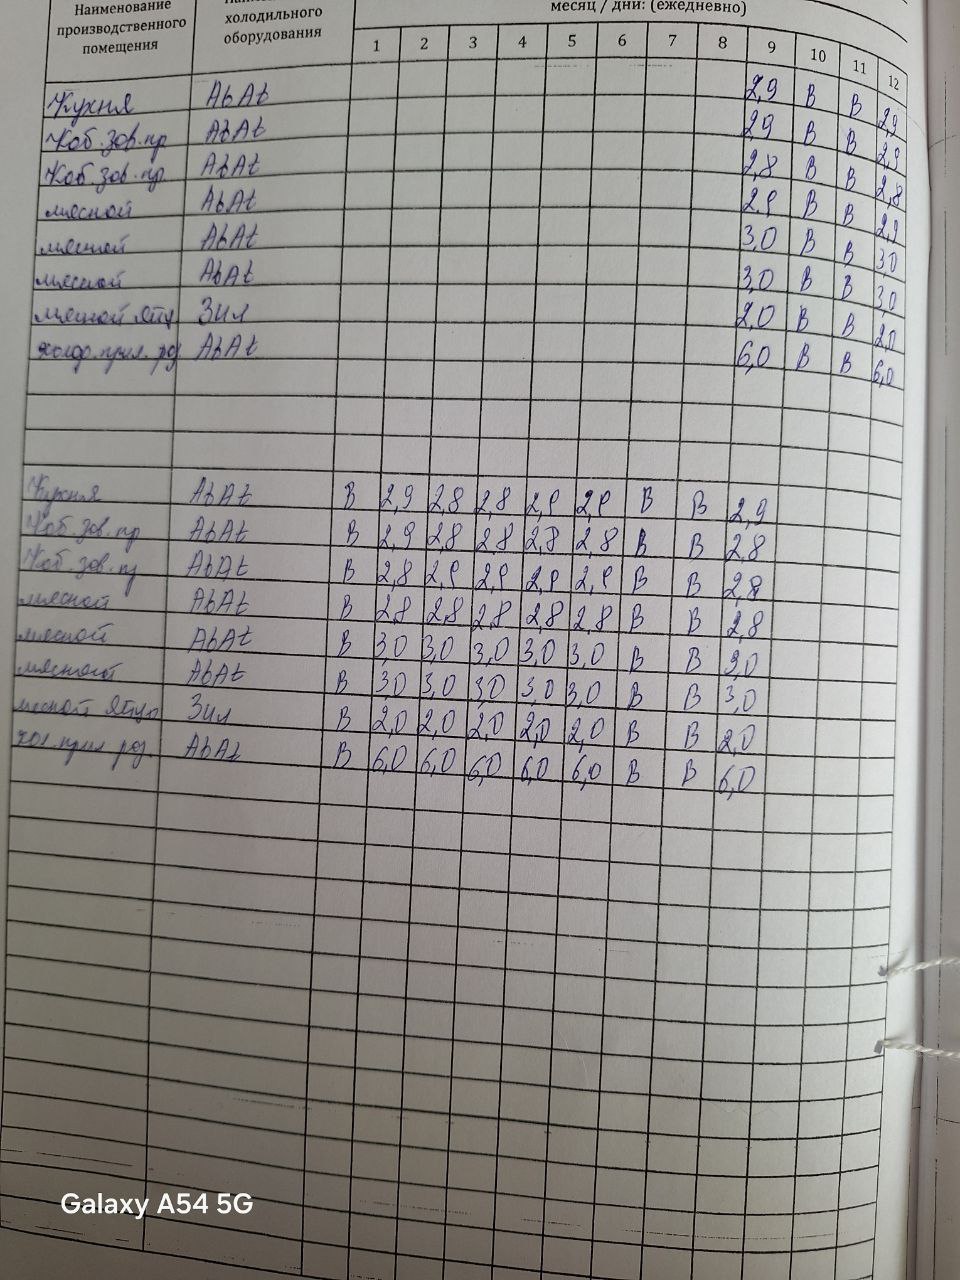 Наименование
производственного
помещения
холодильного
оборудования
месяц / дни: (ежедневно)
1 2 3 4 5 6 7 8 9 10 11 12
Кухня AbAt 2,9 В В 2,9
Каб. зав. пр AbAt 2,9 В В 2,9
Каб. зав. пр. AbAt 2,8 В В 2,8
мясной AbAt 2,9 В В 2,9
мясной AbAt 3,0 В В 3,0
мясной AbAt 3,0 В В 3,0
мясной Зил 2,0 В В 2,0
AbAt 6,0 В В 6,0
Кухня AbAt В 2,9 2,8 2,8 2,9 2,9 В В 2,9
Каб. зав. пр AbAt В 2,9 2,8 2,8 2,8 2,8 В В 2,8
Каб. зав. пр AbAt В 2,8 2,9 2,9 2,9 2,9 В В 2,8
мясной AbAt В 2,8 2,8 2,8 2,8 2,8 В В 2,8
мясной AbAt В 3,0 3,0 3,0 3,0 3,0 В В 3,0
мясной AbAt В 3,0 3,0 3,0 3,0 3,0 В В 3,0
мясной Зил В 2,0 2,0 2,0 2,0 2,0 В В 2,0
AbAt В 6,0 6,0 6,0 6,0 6,0 В В 6,0
Galaxy A54 5G